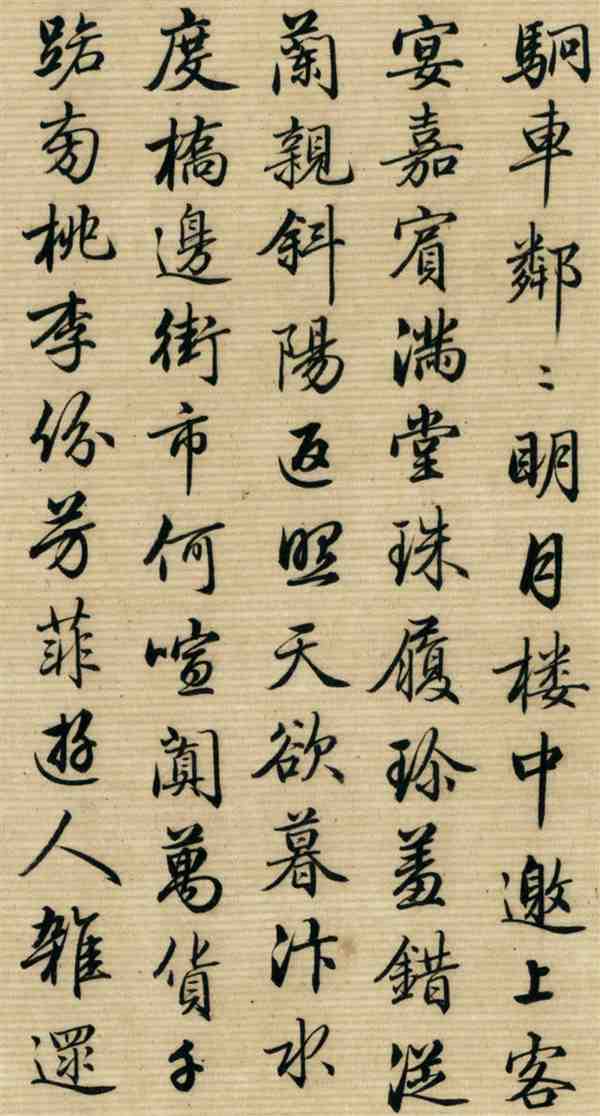 駉車鄰〻明月楼中邀上客
宴嘉賓滿堂珠履珎羞錯從
蘭親斜陽返照天欲暮汴水
度橋邊街市何喧闐萬貨千
路旁桃李份芳菲遊人雜遝